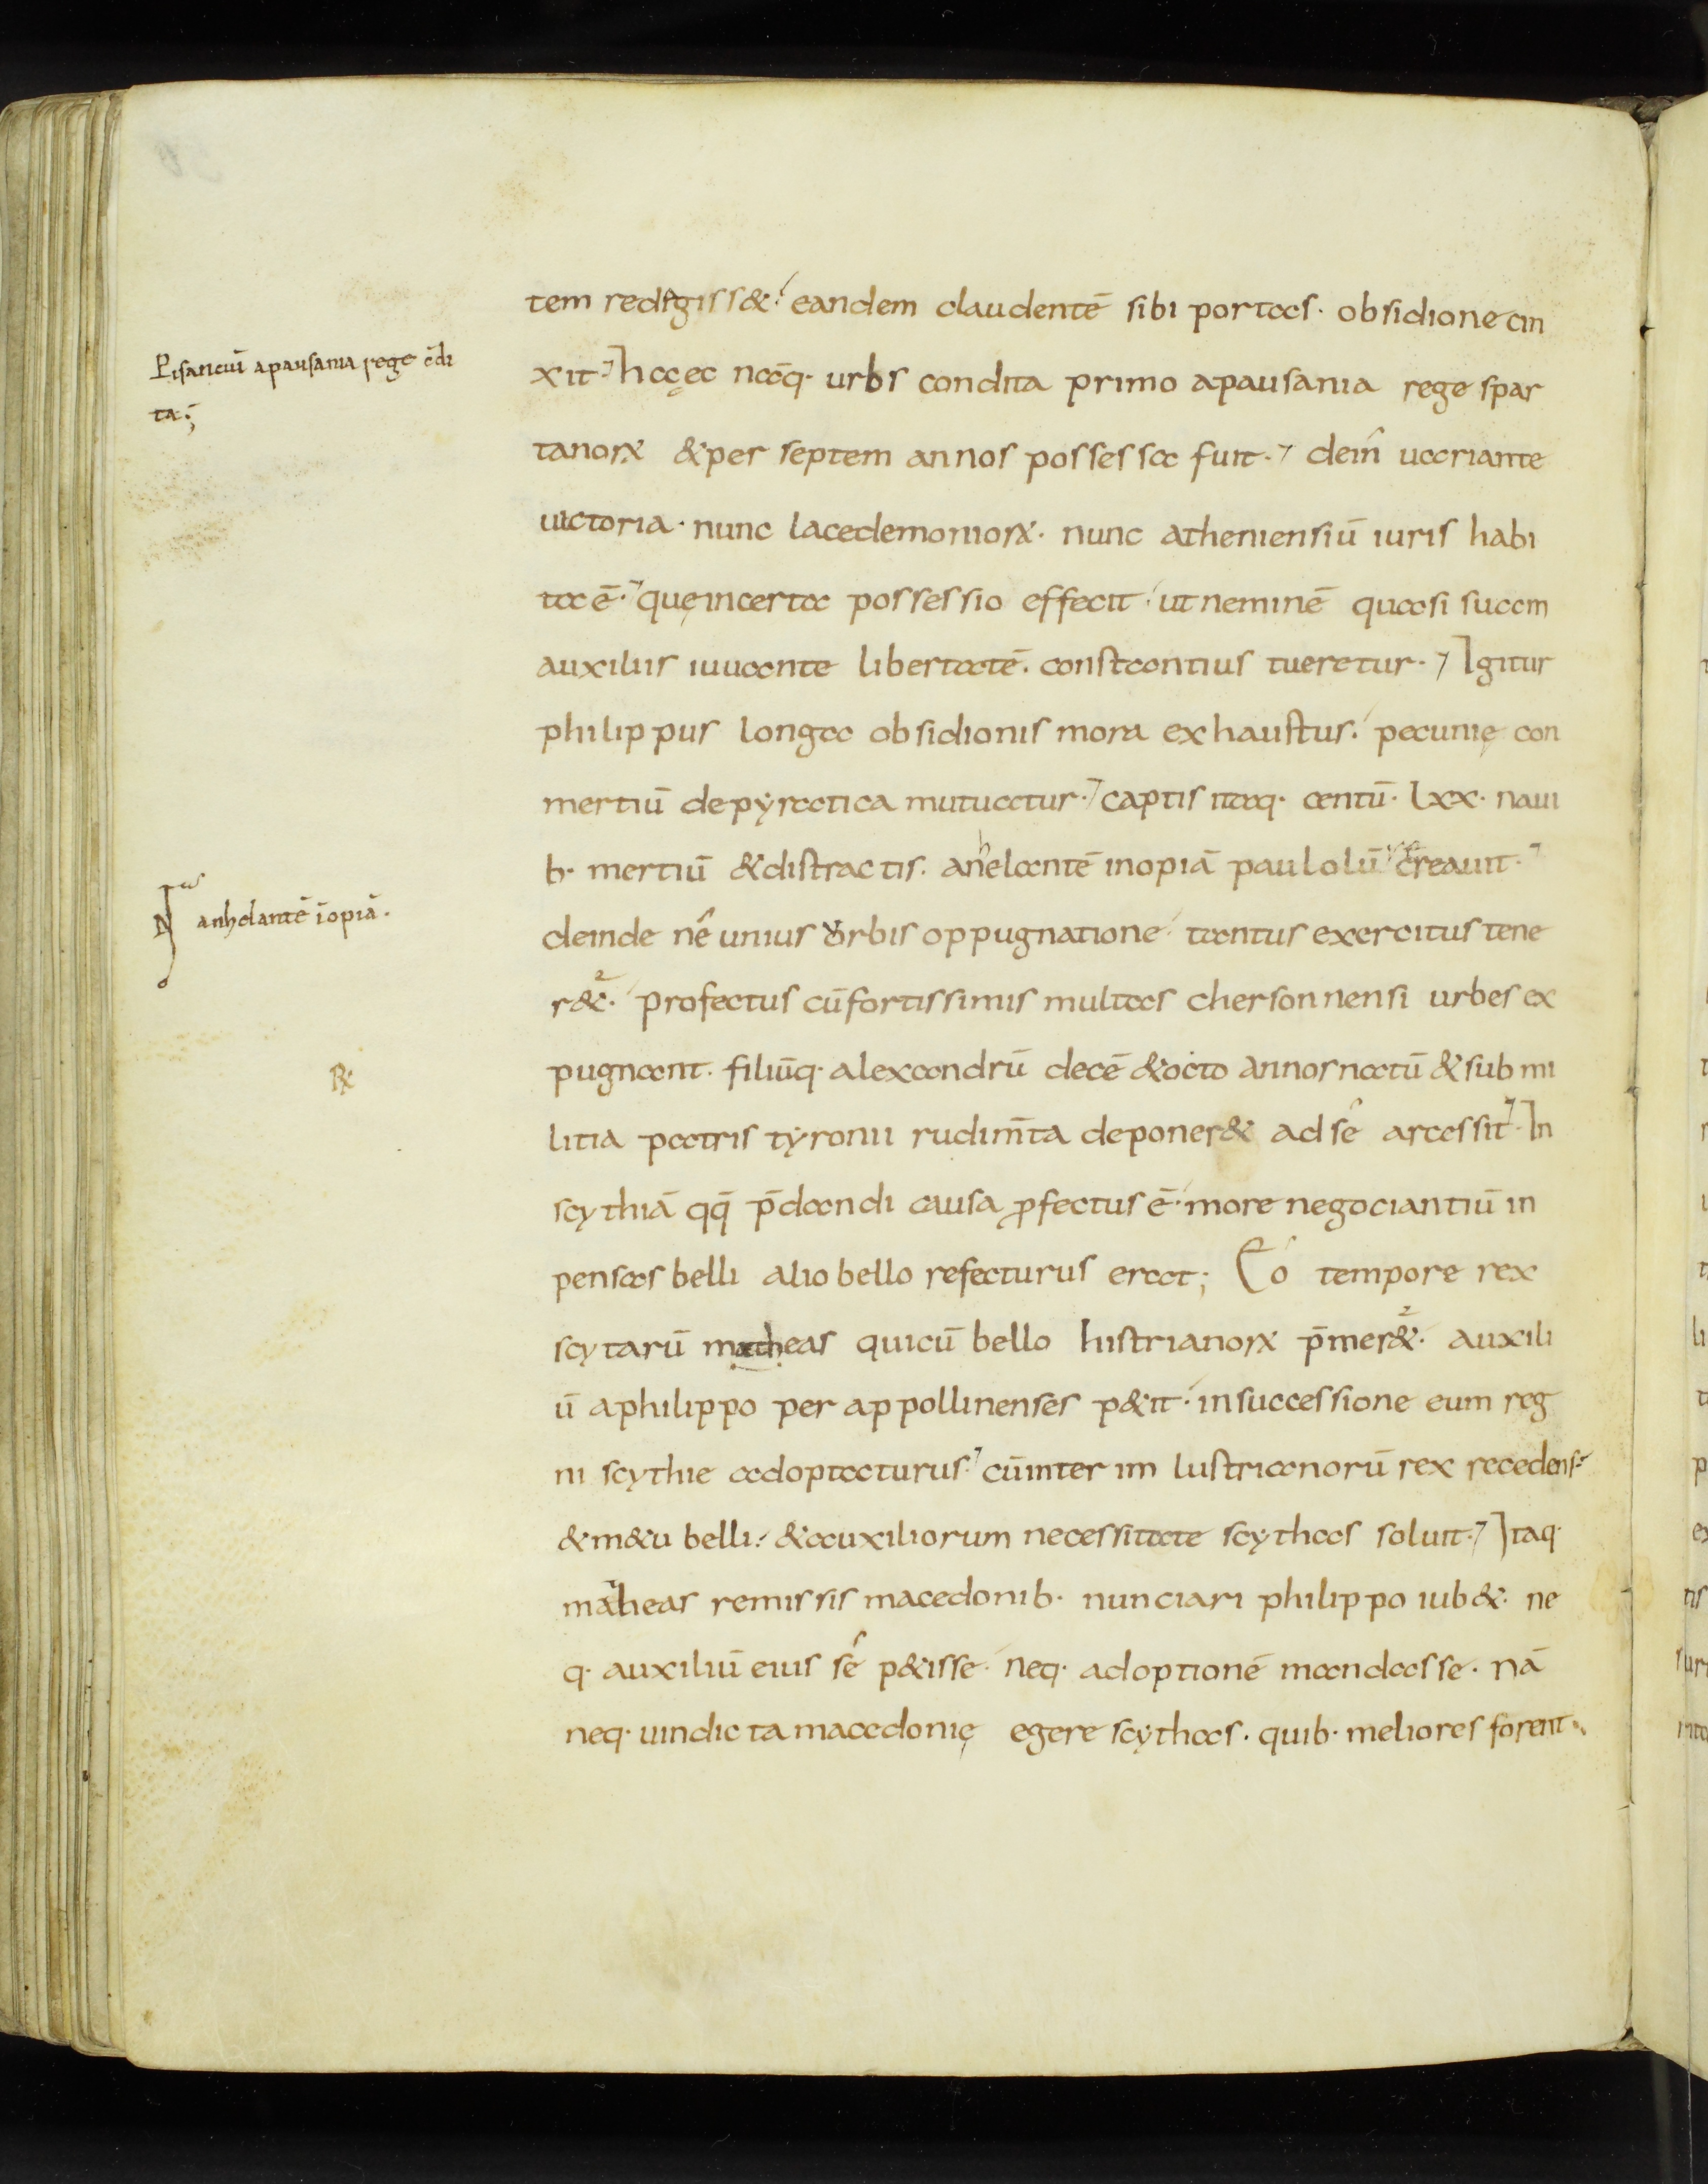 tem redigiss&. eandem claudentē sibi portas. obsidione cin
Pisanciū a pausania rege cōdi
ta;
xit. hęc nāq. urbs condita primo a pausania rege spar
tanorꝝ & per septem annos possessa fuit. dein uariante
uictoria. nunc lacedemoniorꝝ. nunc atheniensiū iuris habi
ta ē. quę incerta possessio effecit. ut neminē quasi suam
auxiliis iuuante libertatē. constantius tueretur. Igitur
philippus longa obsidionis mora exhaustus. pecunię con
mertiū de pyratica mutuatur. captis itaq. centū. lxx. naui
b. mertiū & distractis. anhelantē inopiā paulolū recreauit.
N anhelantē īopiā.
deinde nē unius urbis oppugnatione tantus exercitus tene
r&. profectus cū fortissimis multas chersonnensi urbes ex
pugnant. filiūq. alexandrū decē & octo annos natū & sub mi
Rx
litia patris tyronii rudim̄ta deponer& ad sé arcessit. In
scythiā qq̄ p̄dandi causa ꝓfectus ē. more negociantiū in
pensas belli alio bello refecturus erat; Eó tempore rex
scytarū matheas qui cū bello histrianorꝝ p̄mer&. auxili
ū a philippo per appollinenses p&it. in successione eum reg
ni scythie adoptaturus. cū inter im lustrianorū rex recedens
& m&u belli. & auxiliorum necessitate scythas soluit. Itaq.
matheas remissis macedonib. nunciari philippo iub&. ne
q. auxiliū eius sé p&isse. neq. adoptionē mandasse. nā
neq. uindicta macedonię egere scythas. quib. meliores forent.